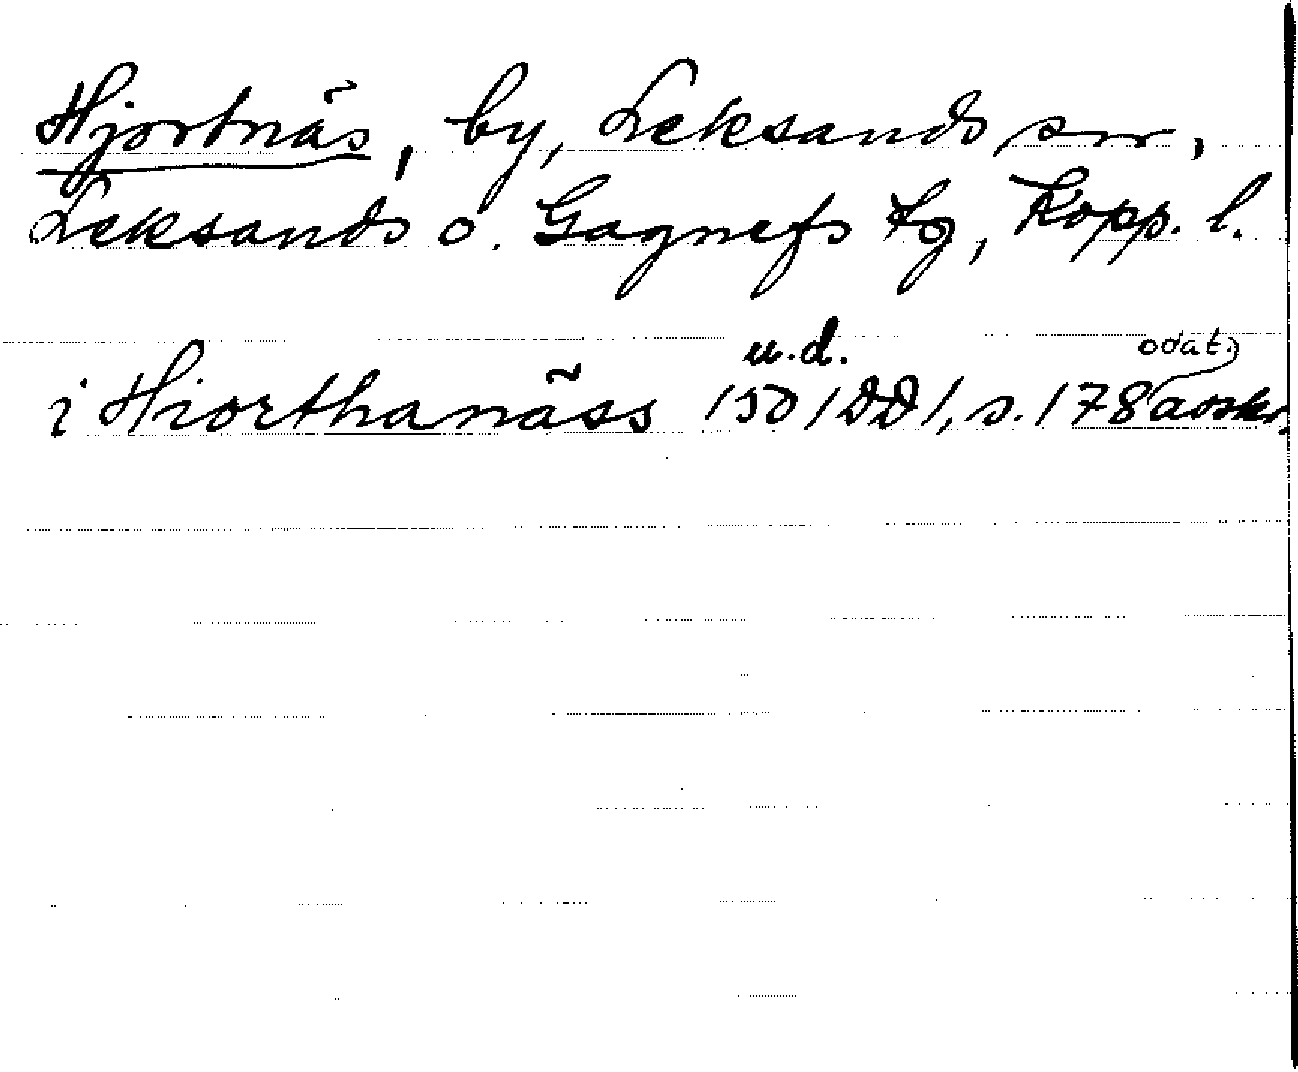 Hjortnäs, by, Leksands sn,
Leksands o. Gagnefs tg, Kopp. l.
u.d. odat.
i Hiorthanäss /50/DD/, s. 178 avskr.